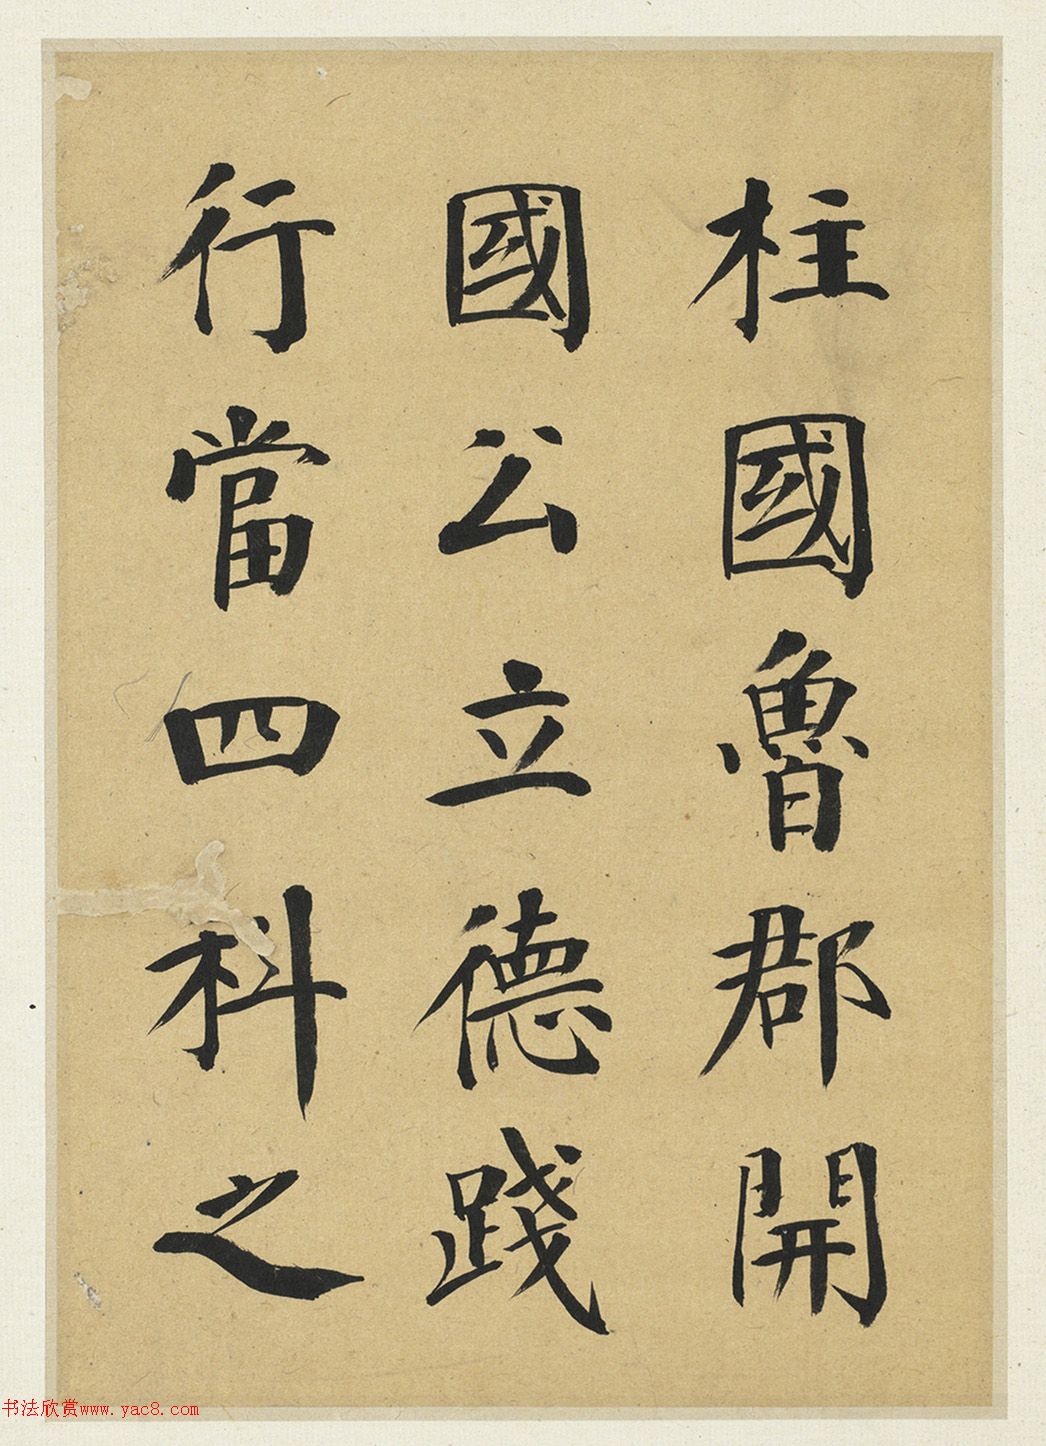 柱國魯郡開
國公立德踐
行當四科之
书法欣赏www.yac8.com